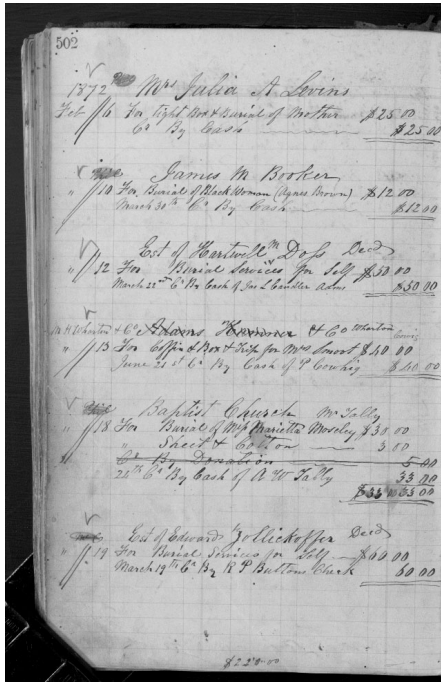 502
1872 Mrs Julia A Levins
Feb 6 For Tight Box & Burial of Mother $25 00
Cr By Cash $25 00
James M Booker
" 10 For Burial of Black Woman (Agnes Brown) $12 00
March 30th Cr By Cash $12 00
Est of Hartwell M Doss Decd
" 12 For Burial Services for Self $50 00
March 22nd Cr By Cash of Jas L Candler Adm $50 00
M H Wharton & Co Adams & Co Wharton
" 13 For Coffin & Box & Trip for Mrs Smoot $40 00
June 21st Cr By Cash of P Cowhig $40 00
Baptist Church Mr Tally
" 18 For Burial of Miss Marietta Moseley $30.00
" " Sheet & Cotton 3 00
Cr By Donation 5 00
24th Cr By Cash of A W Tally 33 00
$33 00 33 00
Est of Edward Zollickoffer Decd
" 19 For Burial Services for Self $60 00
March 19th Cr By R P Buttons Check 60 00
$220.00